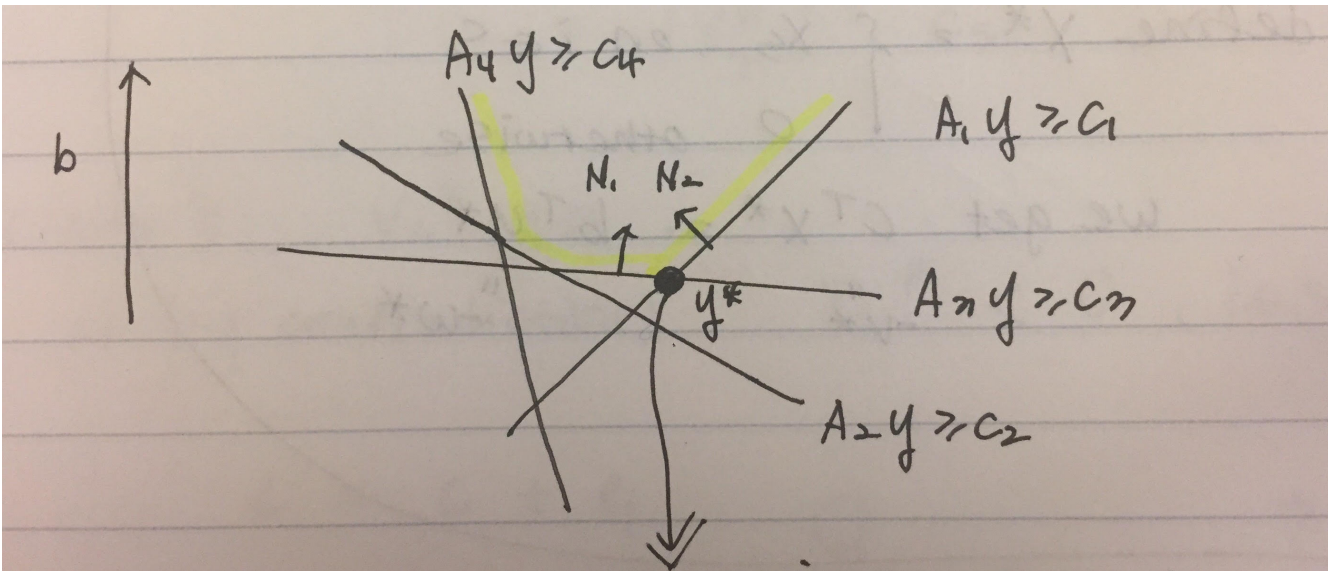 A₄ y ⩾ c₄
A₁ y ⩾ c₁
b
N₁ N₂
y*
Aₙ y ⩾ cₙ
A₂ y ⩾ c₂